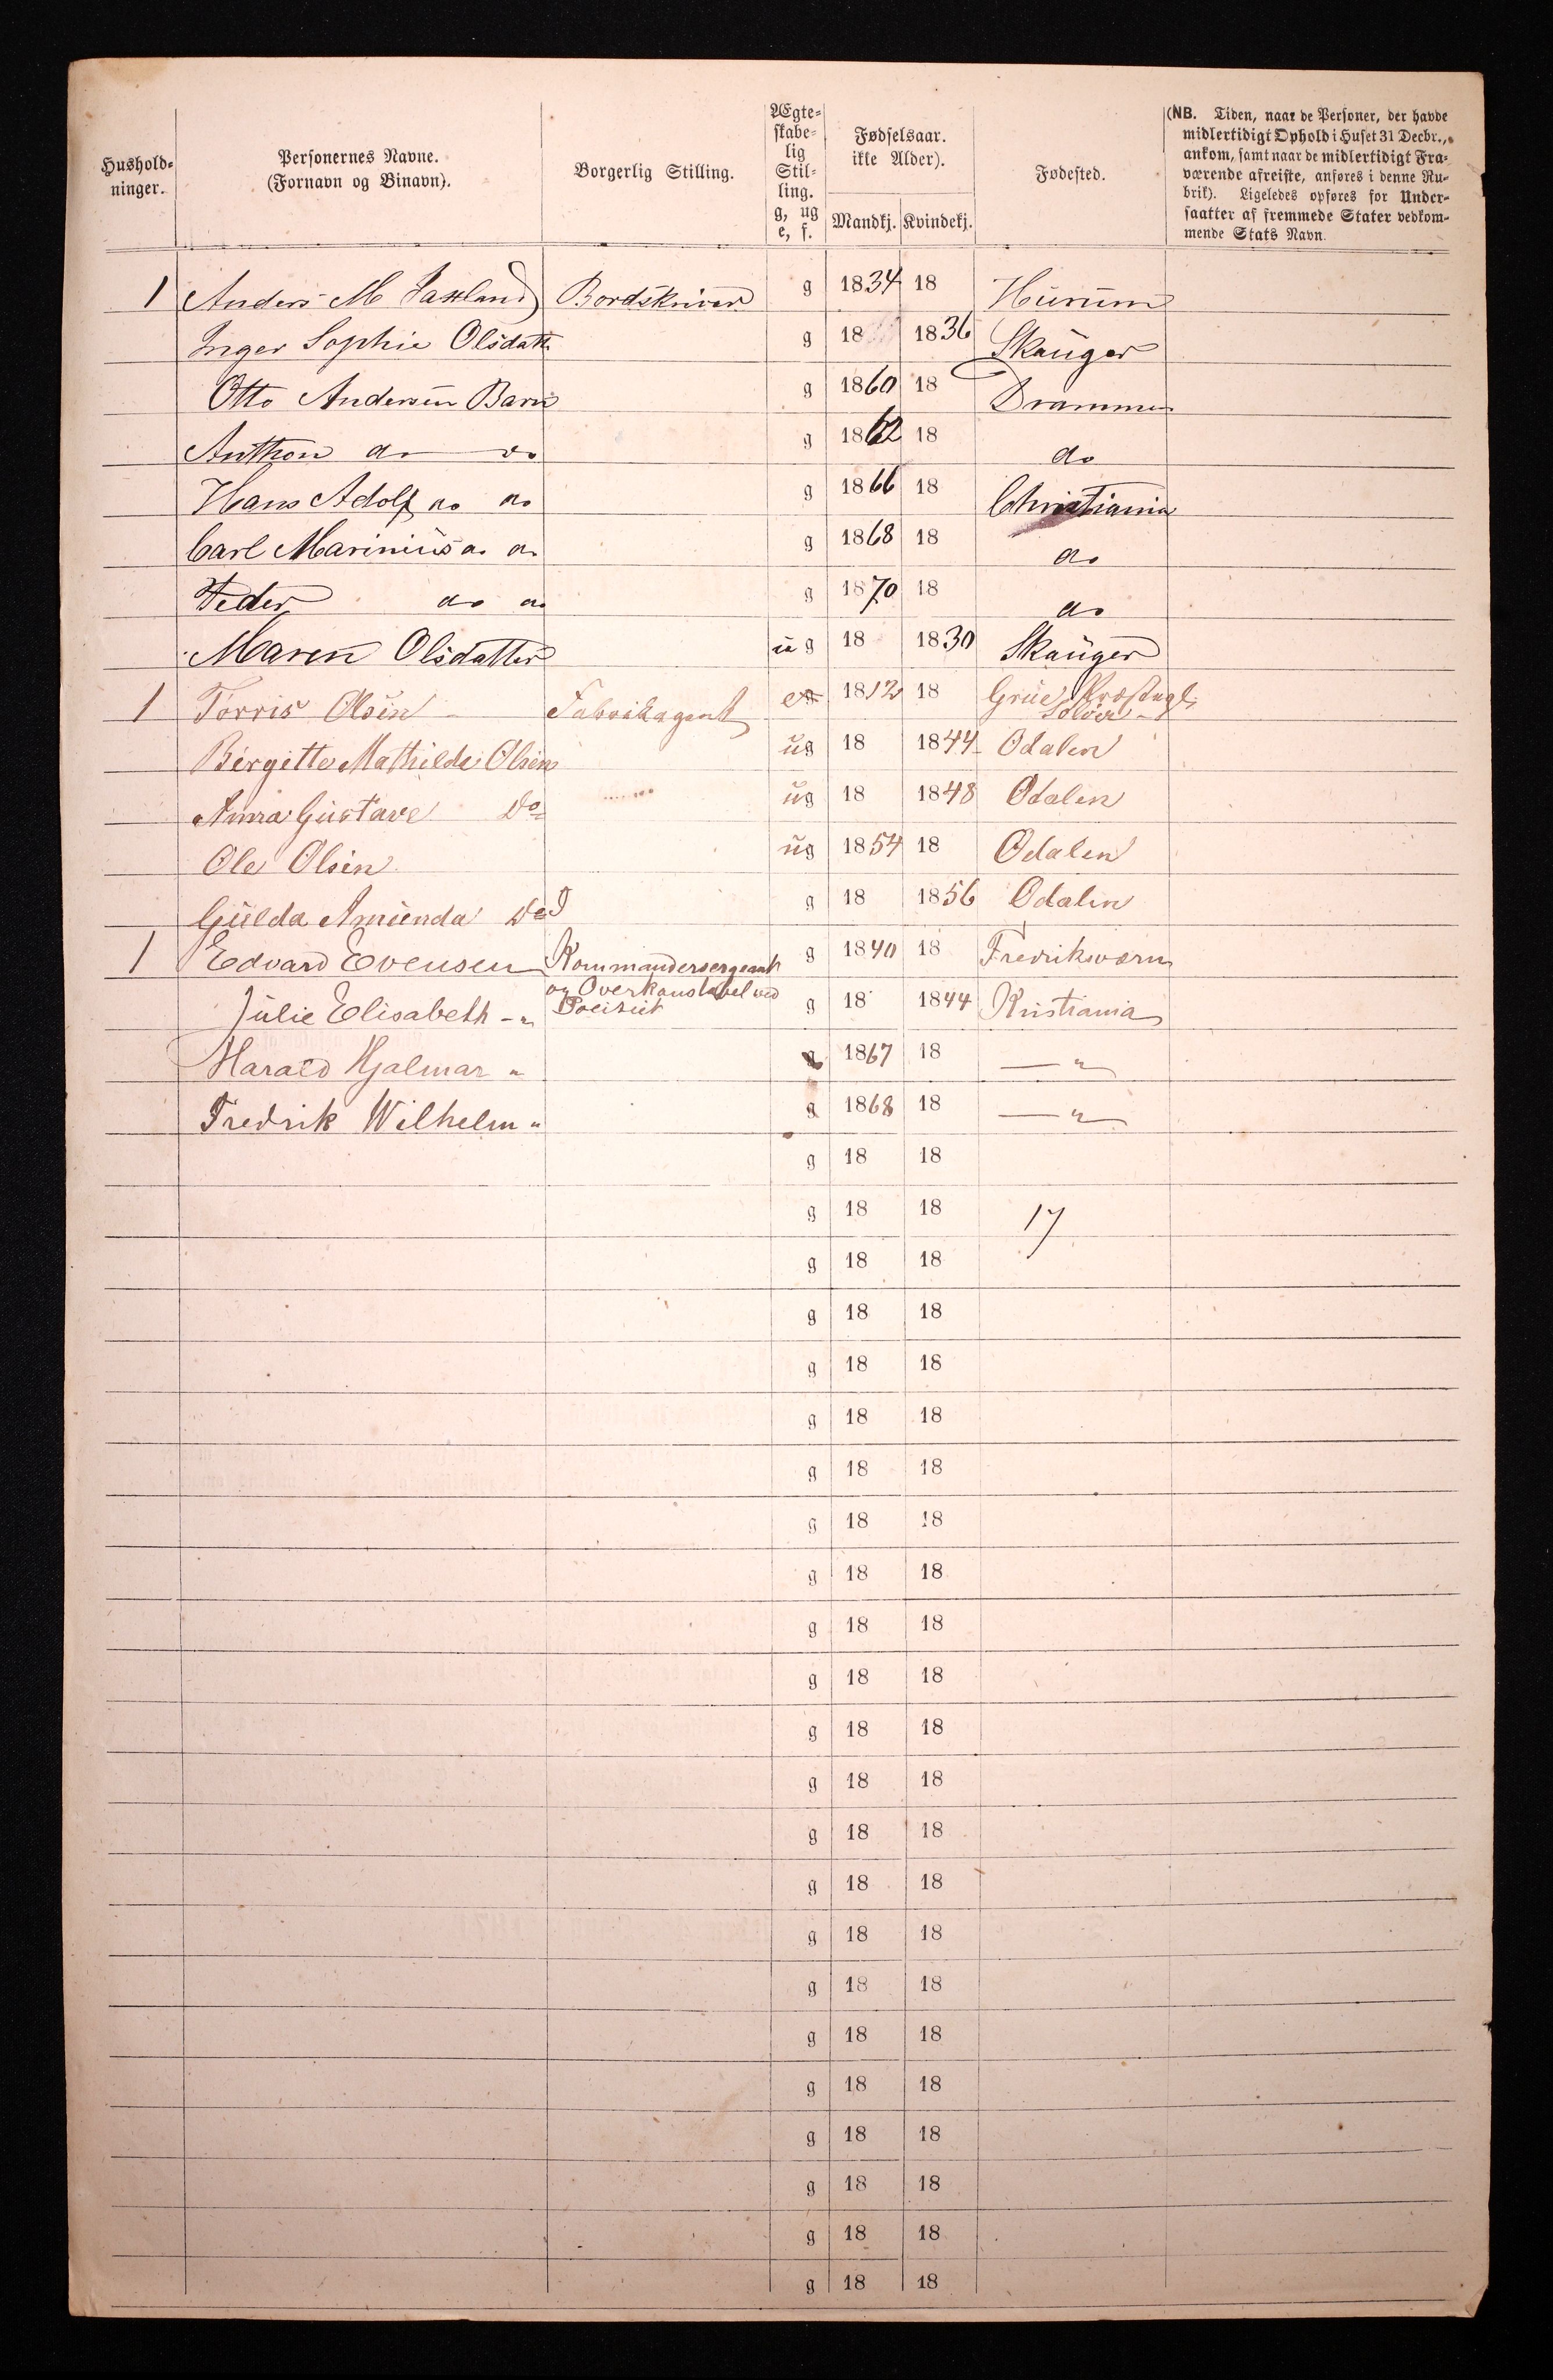 Hushold-
ninger.
Personernes Navne.
(Fornavn og Binavn).
Borgerlig Stilling.
Ægte-
skabe-
lig
Stil-
ling.
g, ug
e, f.
Fødselsaar.
ikke Alder).
Mandkj. Kvindekj.
Fødested.
(NB. Tiden, naar de Personer, der havde
midlertidigt Ophold i Huset 31 Decbr.,
ankom, samt naar de midlertidigt Fra-
værende afreiste, anføres i denne Ru-
brik). Ligeledes opføres for Under-
saatter af fremmede Stater vedkom-
mende Stats Navn.
1 Anders M Bordskriver g 1834 18 Hurum
Inger Sophie Olsdatt g 18 1836 Skauger
Otto Andersen Barn g 1860 18 Drammen
Anthon do do g 1862 18 do
Hans Adolf do do g 1866 18 Christiania
Carl Marinius do do g 1868 18 do
Peder do do g 1870 18 do
Maren Olsdatter ug 18 1830 Skauger
1 Torris Olsen Fabrikagent e 1812 18 Grue Præstegl:
Solöer
Birgitte Mathilde Olsen ug 18 1844 Odalen
Anna Gustave Do ug 18 1848 Odalen
Ole Olsen ug 1854 18 Odalen
Gulda Amunda Do g 18 1856 Odalen
1 Edvard Evensen Kommandersergeant g 1840 18 Fredriksværn
og Overkonstabel ved
Julie Elisabeth - " Poleitiet g 18 1844 Kristiania
Harald Hjalmar " g 1867 18 — " —
Fredrik Wilhelm " g 1868 18 — " —
g 18 18
g 18 18 17
g 18 18
g 18 18
g 18 18
g 18 18
g 18 18
g 18 18
g 18 18
g 18 18
g 18 18
g 18 18
g 18 18
g 18 18
g 18 18
g 18 18
g 18 18
g 18 18
g 18 18
g 18 18
g 18 18
g 18 18
g 18 18